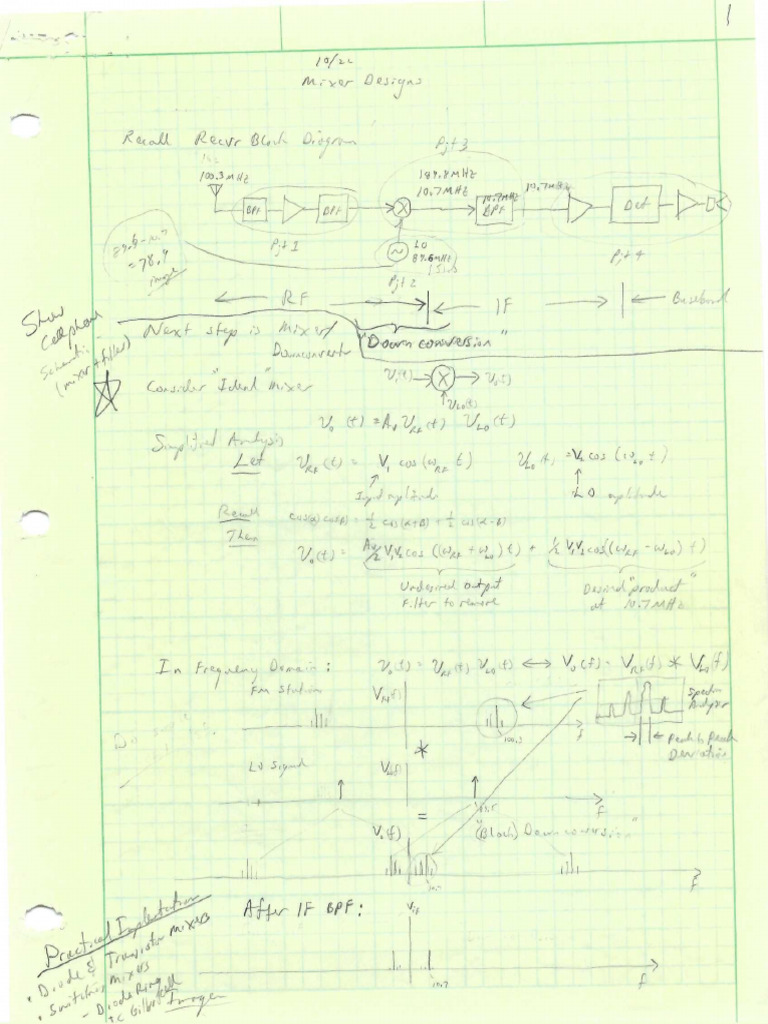 1
10/22
Mixer Designs
Recall Recvr Block Diagram
Pjt 3
100.3 MHz
189.9 MHz
10.7 MHz
10.7 MHz
10.7 MHz
BPF
BPF
BPF
Det
= 78.9
image
Pjt 1
LO
89.6 MHz
Pjt 2
Pjt 4
RF
IF
Baseband
Show
Cellphone
Schematic
(mixer + filter)
Next step is Mixer/
Downconverter
"Down conversion"
Consider "Ideal" mixer
Vi(t)
Vo(t)
VLO(t)
Vo(t) = Av VRF(t) VLO(t)
Simplified Analysis
Let
VRF(t) = V1 cos(ωRF t)
VLO(t) = V2 cos(ωLO t)
Input amplitude
LO amplitude
Recall
cos(α)cos(β) = 1/2 cos(α+β) + 1/2 cos(α-β)
Then
Vo(t) = Av/2 V1V2 cos((ωRF + ωLO)t) + 1/2 V1V2 cos((ωRF - ωLO)t)
Undesired output
Filter to remove
Desired "product"
at 10.7 MHz
In Frequency Domain:
vo(t) = VRF(t) VLO(t) ↔ Vo(f) = VRF(f) * VLO(f)
FM Station
VRF(f)
Spectrum
Analyzer
100.3
f
Peak to Peak
Deviation
*
LO Signal
VLO(f)
f
=
Vo(f)
"(Block) Downconversion"
10.7
f
After IF BPF:
VIF
10.7
f
Practical Implementation
• Diode & Transistor mixers
• Switching mixers
- Diode Ring
- IC Gilbert Cell